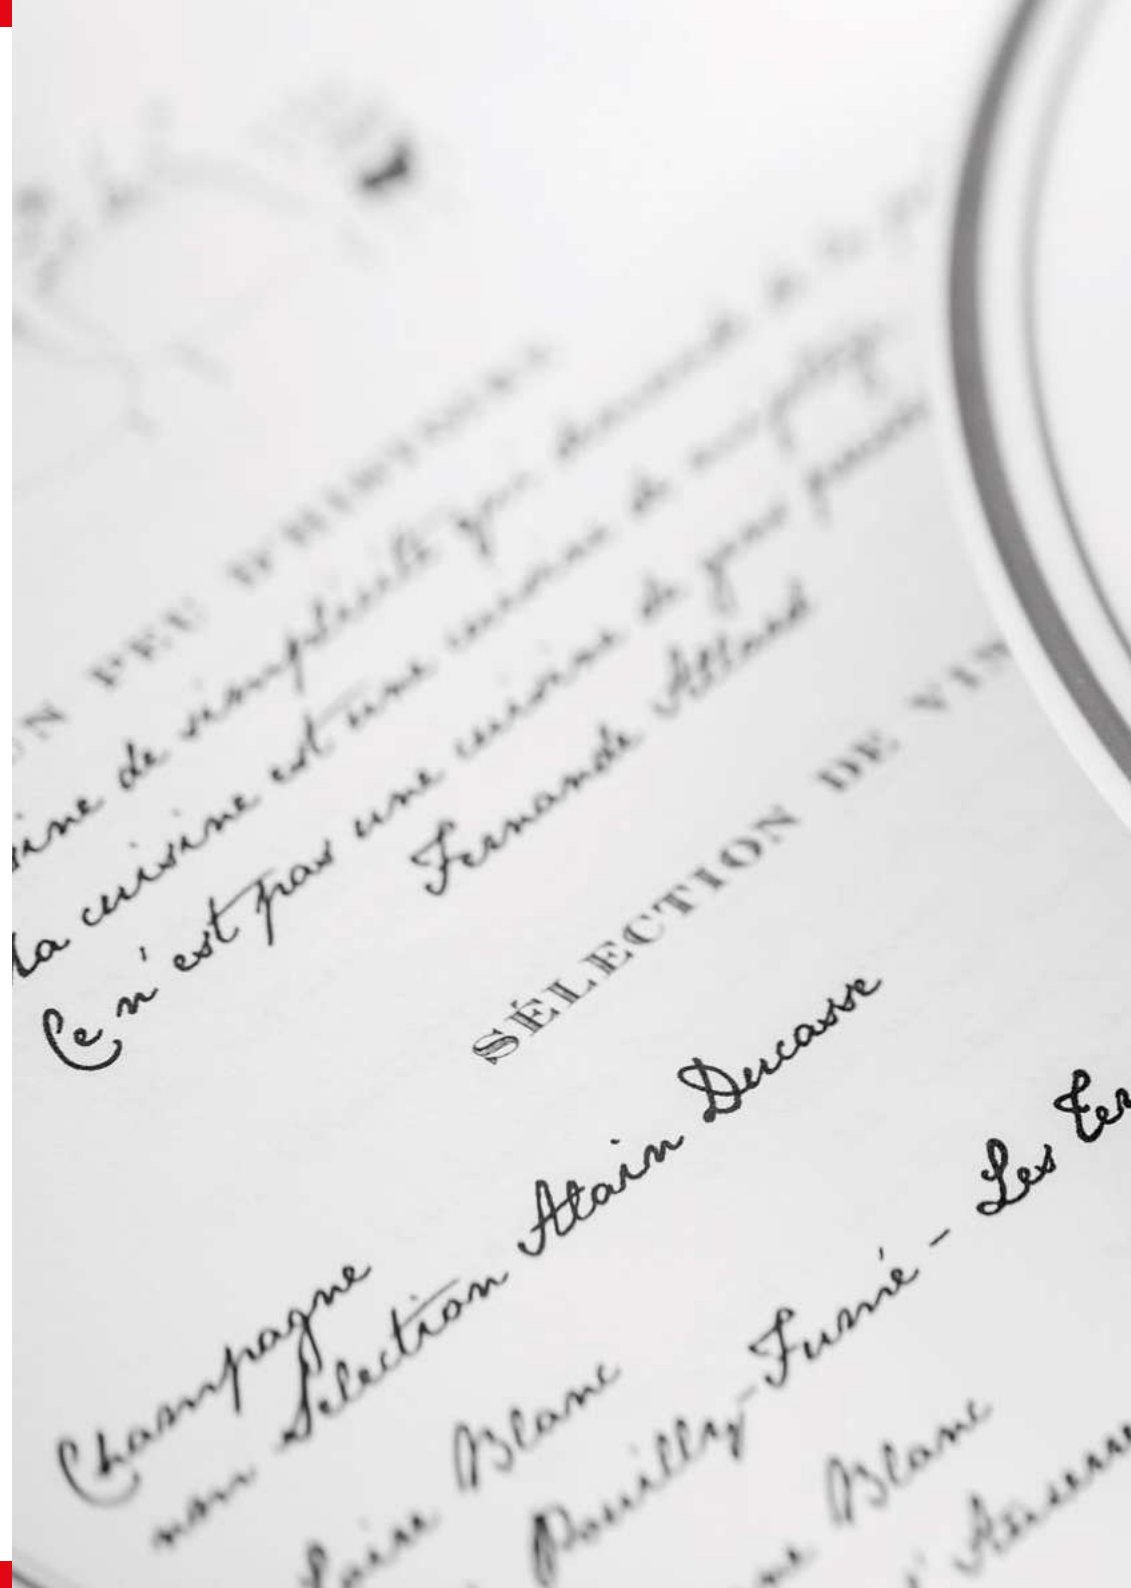 UN PEU D'HISTOIRE
sine de simplicité qui demande
la cuisine est une cuisine de
Ce n'est pas une cuisine de gens
Fernande Allard
SÉLECTION DE VIN
Champagne
non Sélection Alain Ducasse
Loire Blanc
Pouilly-Fumé - Les Ter
Blanc